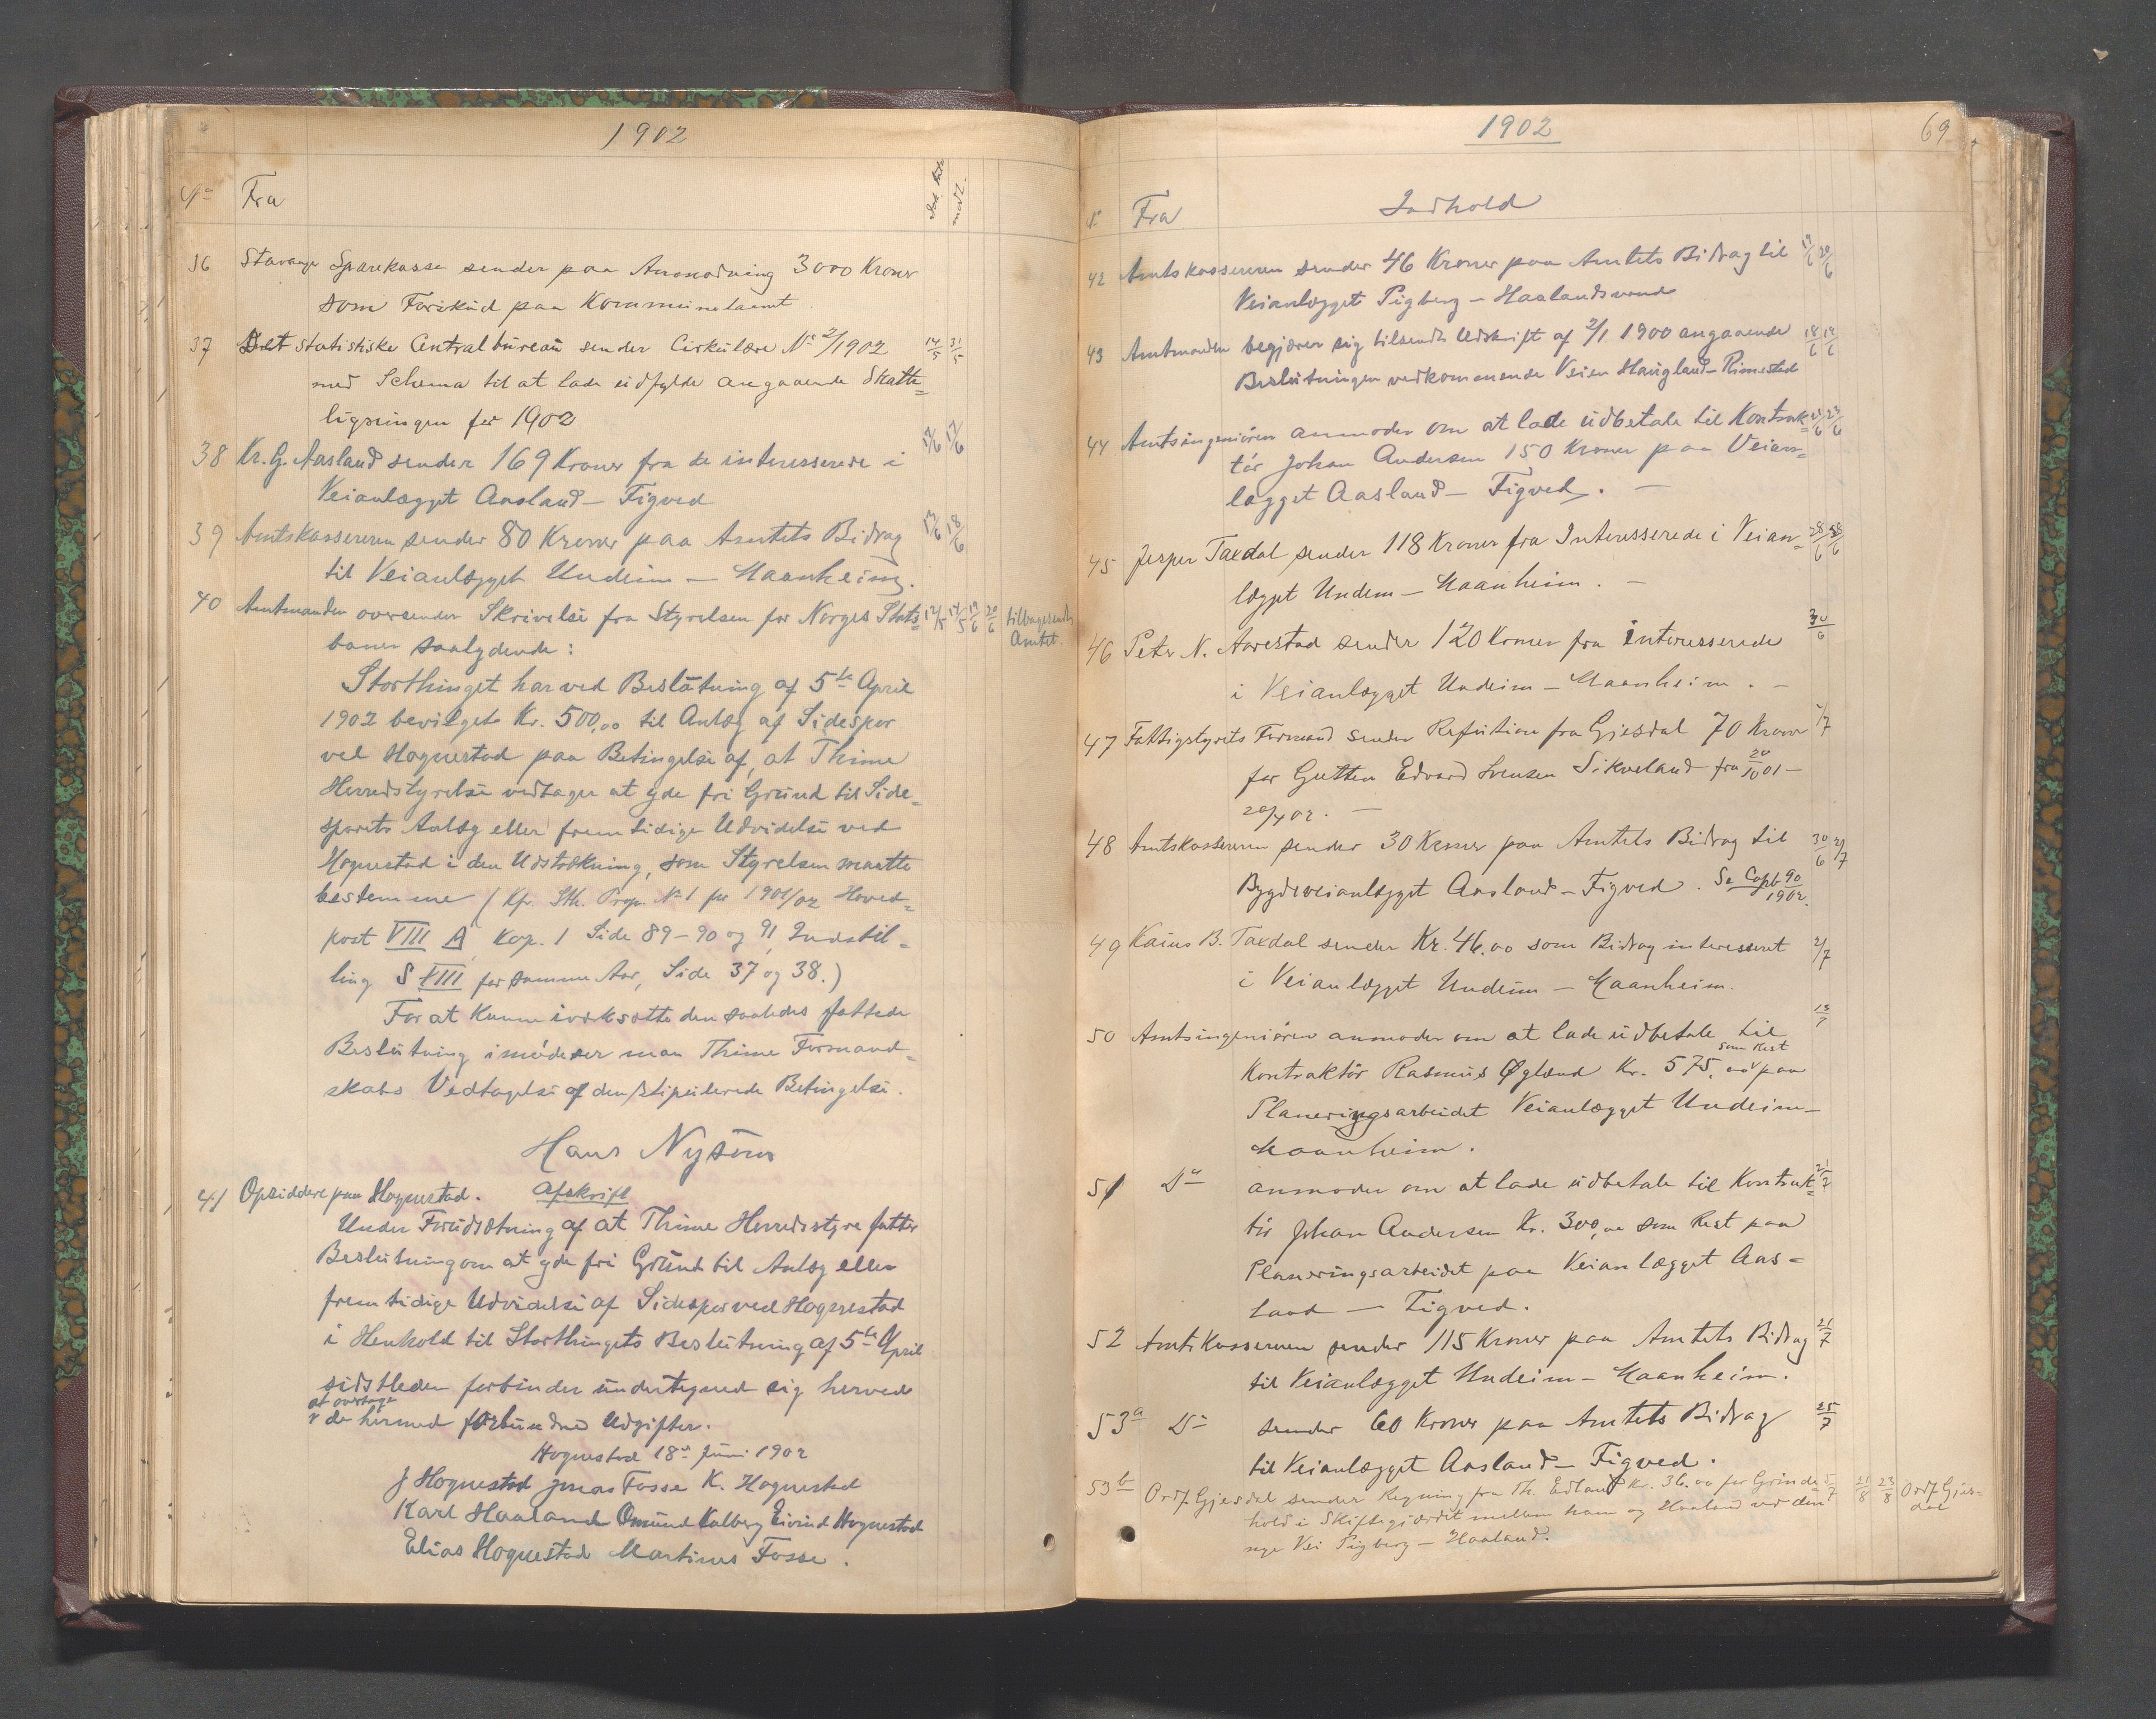 1902
No Fra
36 Stavanger Sparekasse sender paa Anmodning 3000 Kroner
som Forskud paa Kommunelaanet
37 Det statistiske Centralbureau sender Cirkulære No 2/1902 14/5 31/5
med Schema til at lade udfylde angaaende Skatte=
ligningen for 1902
38 Kr. G. Aasland sender 169 Kroner fra de interesserede i 17/6 17/6
Veianlægget Aasland – Figved
39 Amtskassereren sender 80 Kroner paa Amtets Bidrag 18/6
til Veianlægget Undeim – Maanheim.
40 Amtmanden oversender Skrivelse fra Styrelsen for Norges Stats= 12/5 14/5 19/6 20/6 tilbagesendt
baner saalydende: Amtet.
Storthinget har ved Beslutning af 5te April
1902 bevilget Kr. 500,00 til Anlæg af Sidespor
ved Hognestad paa Betingelse af, at Thime
Herredstyrelse vedtager at yde fri Grund til Side=
sporets Anlæg eller fremtidige Udvidelse ved
Hognestad i den Udstrækning, som Styrelsen maatte
bestemme (Kfr. Sth. Prop. No 1 for 1901/02 Hoved=
post VIII A Kap. 1 Side 89–90 og 91, Indstil=
ling S XIII for samme Aar, Side 37 og 38.)
For at kunne iværksætte den saaledes fattede
Beslutning imødeser man Thime Formand=
skabs Vedtagelse af den stipulerede Betingelse.
Hans Nysom
41 Opsiddere paa Hognestad. Afskrift
Under Forudsætning af at Thime Herredsstyre fatter
Beslutning om at yde fri Grund til Anlæg eller
fremtidige Udvidelse af Sidespor ved Hognestad
i Henhold til Storthingets Beslutning af 5te April
sidstleden forbinder undertegned sig herved
at overtage
de hermed forbundne Udgifter.
Hognestad 18de Juni 1902
J Hognestad Jonas Fosse K. Hognestad
Karl Haaland Omund Kalberg Eivind Hognestad
Elias Hognestad Martinus Fosse.
1902 69
Fra Indhold
42 Amtskassereren sender 46 Kroner paa Amtets Bidrag til 19/6 20/6
Veianlægget Pigberg – Haalandsvand
43 Amtmanden begjærer sig tilsendt Udskrift af 2/1 1900 angaaende 18/6 19/6
Beslutningen vedkommende Veien Haugland–Rimestad
44 Amtsingeniøren anmoder om at lade udbetale til Kontrak=
tør Johan Andersen 150 Kroner paa Veian=
lægget Aasland – Figved. –
45 Jesper Taxdal sender 118 Kroner fra Interesserede i Veian= 28/6 28/6
lægget Undem – Maanheim. –
46 Peter N. Aarestad sender 120 Kroner fra interesserede 30/6
i Veianlægget Undeim – Maanheim. –
47 Fattigstyrets Formand sender Refution fra Gjesdal 70 Kroner 1/7
for Gutten Edvard Svensen Sikveland fra 20/10 01 –
20/4 02. –
48 Amtskassereren sender 30 Kroner paa Amtets Bidrag til 30/6 2/7
Bygdeveianlægget Aasland – Figved. Se Copb 90/1902.
49 Kaius B. Taxdal sender Kr. 46.00 som Bidrag interesseret 2/7
i Veianlægget Undeim – Maanheim.
50 Amtsingeniøren anmoder om at lade udbetale til 12/7
som Rest
Kontraktør Rasmus Øglænd Kr. 575,00 paa
Planeringsarbeidet Veianlægget Undeim –
Maanheim.
51 Do anmoder om at lade udbetale til Kontrak=
tør Johan Andersen Kr. 300,00 som Rest paa
Planeringsarbeidet paa Veianlægget Aas=
land – Figved.
52 Amtskassereren sender 115 Kroner paa Amtets Bidrag 21/7
til Veianlægget Undeim – Maanheim.
53a Do sender 60 Kroner paa Amtets Bidrag 25/7
til Veianlægget Aasland – Figved.
53b Ordf. Gjesdal sender Regning fra Th. Edland Kr. 36.00 for Grinde 21/8 23/8 Ordf. Gjes=
hold i Skiftegjærdet mellem ham og Haaland ved den dal
nye Vei Pigberg – Haaland.